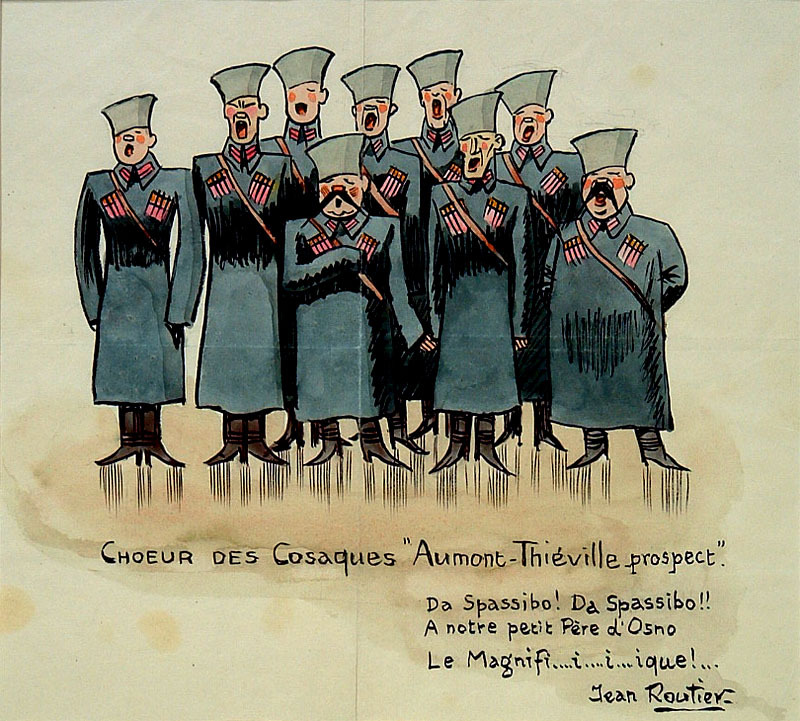 CHOEUR DES COSAQUES "AUMONT-THIÉVILLE prospect".
Da Spassibo! Da Spassibo!!
A notre petit Père d'Osno
Le Magnifi....i....i...ique!...
Jean Routier